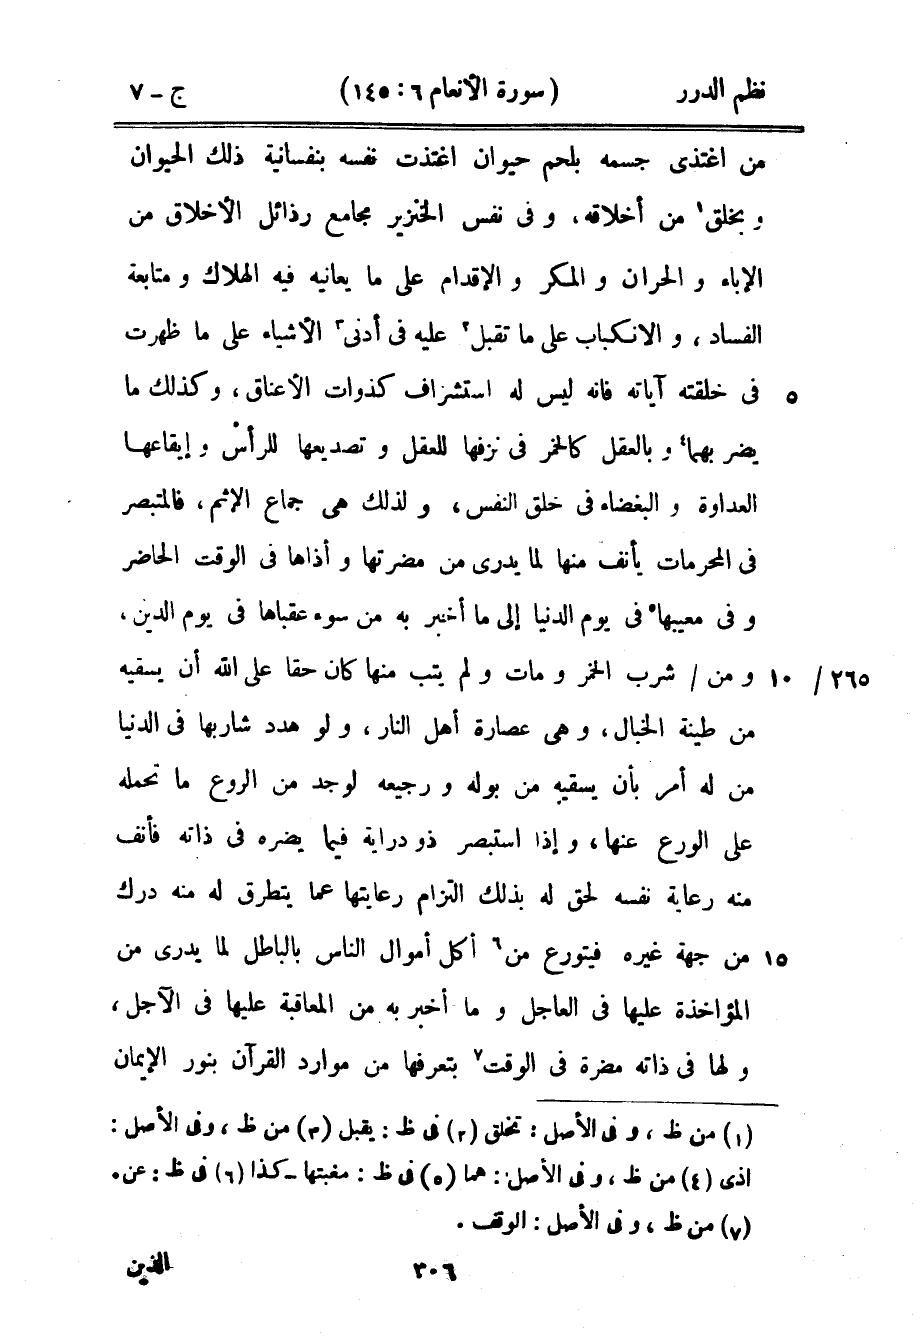 نظم الدرر (سورة الأنعام ٦ : ١٤٥) ج - ٧
من اغتذى جسمه بلحم حيوان اغتذت نفسه بنفسانية ذلك الحيوان
و بخلق١ من أخلاقه، و فى نفس الخنزير مجامع رذائل الأخلاق من
الإباء و الحران و المكر و الإقدام على ما يعانيه فيه الهلاك و متابعة
الفساد، و الانكباب على ما تقبل٢ عليه فى أدنى٣ الأشياء على ما ظهرت
٥ فى خلقته آياته فانه ليس له استشراف كذوات الأعناق، وكذلك ما
يضر بهما٤ و بالعقل كالخمر فى نزفها للعقل و تصديعها للرأس و إيقاعها
العداوة و البغضاء فى خلق النفس، و لذلك هى جماع الإثم، فالمتبصر
فى المحرمات يأنف منها لما يدرى من مضرتها و أذاها فى الوقت الحاضر
و فى معيبها٥ فى يوم الدنيا إلى ما أخبر به من سوء عقباها فى يوم الدين،
٢٦٥/ ١٠ و من / شرب الخمر و مات و لم يتب منها كان حقا على الله أن يسقيه
من طينة الخبال، و هى عصارة أهل النار، و لو هدد شاربها فى الدنيا
من له أمر بأن يسقيه من بوله و رجيعه لوجد من الروع ما تحمله
على الورع عنها، و إذا استبصر ذو دراية فيما يضره فى ذاته فأنف
منه رعاية نفسه لحق له بذلك التزام رعايتها عما يتطرق له منه درك
١٥ من جهة غيره فيتورع من٦ أكل أموال الناس بالباطل لما يدرى من
المؤاخذة عليها فى العاجل و ما أخبر به من المعاقبة عليها فى الآجل،
و لها فى ذاته مضرة فى الوقت٧ بتعرفها من موارد القرآن بنور الإيمان
(١) من ظ، و فى الأصل : تخلق (٢) فى ظ : يقبل (٣) من ظ، وفى الأصل :
اذى (٤) من ظ، و فى الأصل : هما (٥) فى ظ : مغبتها - كذا (٦) فى ظ : عن.
(٧) من ظ، و فى الأصل : الوقف.
٣٠٦ الذين